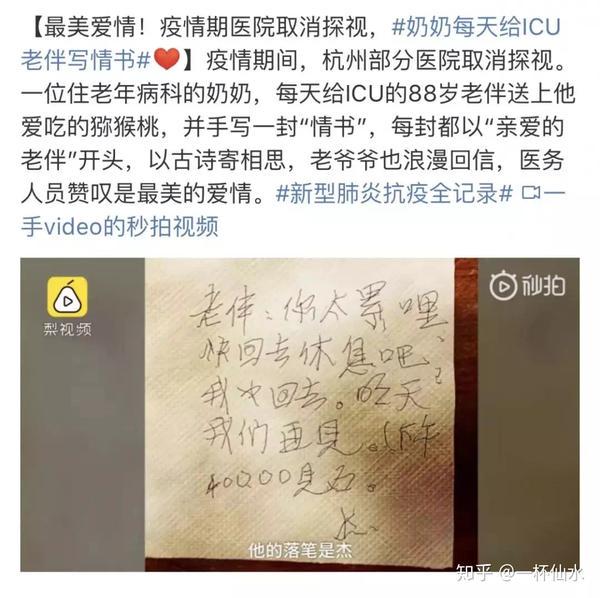 【最美爱情！疫情期医院取消探视，#奶奶每天给ICU
老伴写情书#❤️】疫情期间，杭州部分医院取消探视。
一位住老年病科的奶奶，每天给ICU的88岁老伴送上他
爱吃的猕猴桃，并手写一封“情书”，每封都以“亲爱的
老伴”开头，以古诗寄相思，老爷爷也浪漫回信，医务
人员赞叹是最美的爱情。#新型肺炎抗疫全记录# 一
手video的秒拍视频
梨视频
秒拍
老伴：你太累哩
快回去休息吧、
我回去。明天
我们再见。下午
40000见
他的落笔是杰
知乎 @一杯仙水